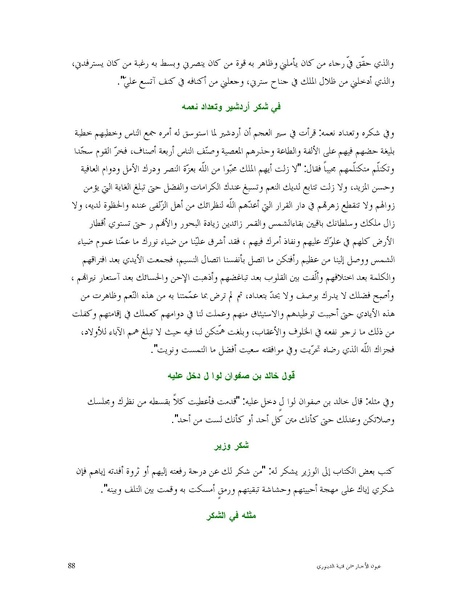 والذي حقّق فيّ رجاء من كان يأملني وظاهر به قوة من كان ينصرني وبسط به رغبة من كان يسترفدني،
والذي أدخلني من ظلال الملك في جناح سترني، وجعلني من أكنافه في كنف آتسع عليّ".
في شكر أردشير وتعداد نعمه
وفي شكره وتعداد نعمه: قرأت في سير العجم أن أردشير لما استوسق له أمره جمع الناس وخطبهم خطبة
بليغة حضهم فيهم على الألفة والطاعة وحذرهم المعصية وصنّف الناس أربعة أصناف، فخرّ القوم سجّدا
وتكلّم متكلّمهم مجيباً فقال: "لا زلت أيهم الملك محبّوا من اللّه بعزّة النصر ودرك الأمل ودوام العافية
وحسن المزيد، ولا زلت تتابع لديك النعم وتسبغ عندك الكرامات والفضل حتى تبلغ الغاية التي يؤمن
زوالهم ولا تنقطع زهرتهم في دار القرار التي أعدّهم اللّه لنظرائك من أهل الزّلفى عنده والحظوة لديه، ولا
زال ملكك وسلطانك باقيين بقاءالشمس والقمر زائدين زيادة البحور والأنهم ر حتى تستوي أقطار
الأرض كلهم في علوّك عليهم ونفاذ أمرك فيهم ، فقد أشرق علينا من ضياء نورك ما عمّنا عموم ضياء
الشمس ووصل إلينا من عظيم رأفتكن ما اتصل بأنفسنا اتصال النسيم، فجمعت الأيدي بعد افتراقهم
والكلمة بعد اختلافهم وألّفت بين القلوب بعد تباغضهم وأذهبت الإحن والحسائك بعد آستعار نيرانهم ،
وأصبح فضلك لا يدرك بوصف ولا يحدّ بتعداد، ثم لم ترض بما عمّمتنا به من هذه النّعم وظاهرت من
هذه الأيادي حتى أحببت توطيدهم والاستيثاق منهم وعملت لنا في دوامهم كعملك في إقامتهم وكفلت
من ذلك ما نرجو نفعه في الخلوف والأعقاب، وبلغت همّتكن لنا فيه حيث لا تبلغ همم الآباء للأولاد،
فجزاك اللّه الذي رضاه تحرّيت وفي موافقته سعيت أفضل ما التمست ونويت".
قول خالد بن صفوان لوا ل دخل عليه
وفي مثله: قال خالد بن صفوان لوا لٍ دخل عليه: "قدمت فأعطيت كلاّ بقسطه من نظرك ومجلسك
وصلاتكن وعدلك حتى كأنك متن كل أحد أو كأنك لست من أحد".
شكر وزير
كتب بعض الكتاب إلى الوزير يشكر له: "من شكر لك عن درجة رفعته إليهم أو ثروة أفدته إياهم فإن
شكري إياك على مهجة أحييتهم وحشاشة تبقيتهم ورمقٍ أمسكت به وقمت بين التلف وبينه".
مثله في الشكر
عيون الأخبار
88